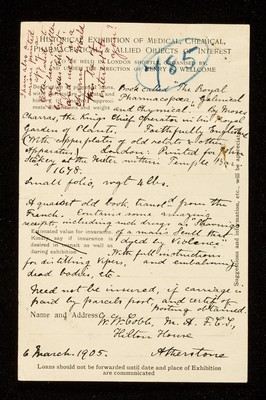 HISTORICAL EXHIBITION OF MEDICAL, CHEMICAL,
PHARMACEUTICAL & ALLIED OBJECTS OF INTEREST
TO BE HELD IN LONDON SHORTLY, ORGANISED BY
UNDER THE DIRECTION OF HENRY S. WELLCOME
185
Book called "The Royal
Pharmacopoea, Galenical
and Chymical by Moses
Charras, the Kings Chief Operator in his Royal
Garden of Plants. Faithfully Englished
(With copperplates of old retorts & other
apparatus) London: Printed for
Starkey at the Miter within Temple Bar
1678.
Small folio, wgt 4 lbs.
A quaint old book, transl'd from the
French. Contains some amazing
receipts including such drug as Shaving
of a man's Scull that
dyed by Violence.
Estimated value for insurance.
Kindly say if insurance is
desired in transit as well as
during exhibition
With full instructions
for distilling Vipers, and embalming
dead bodies, etc.
Need not be insured, if carriage is
paid by parcels post, and certif. of
posting obtained.
Name and Address
W. W. Cobb, M.A. F.C.S,
Hilton House
6 March, 1905. Atherstone
Suggestions and information, etc., will be especially
Loans should not be forwarded until date and place of Exhibition
are communicated